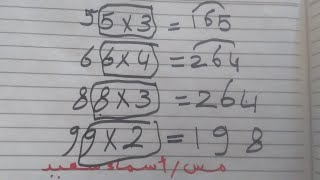 55×3=165
66×4=264
88×3=264
99×2=198
مس/أسماء سعيد